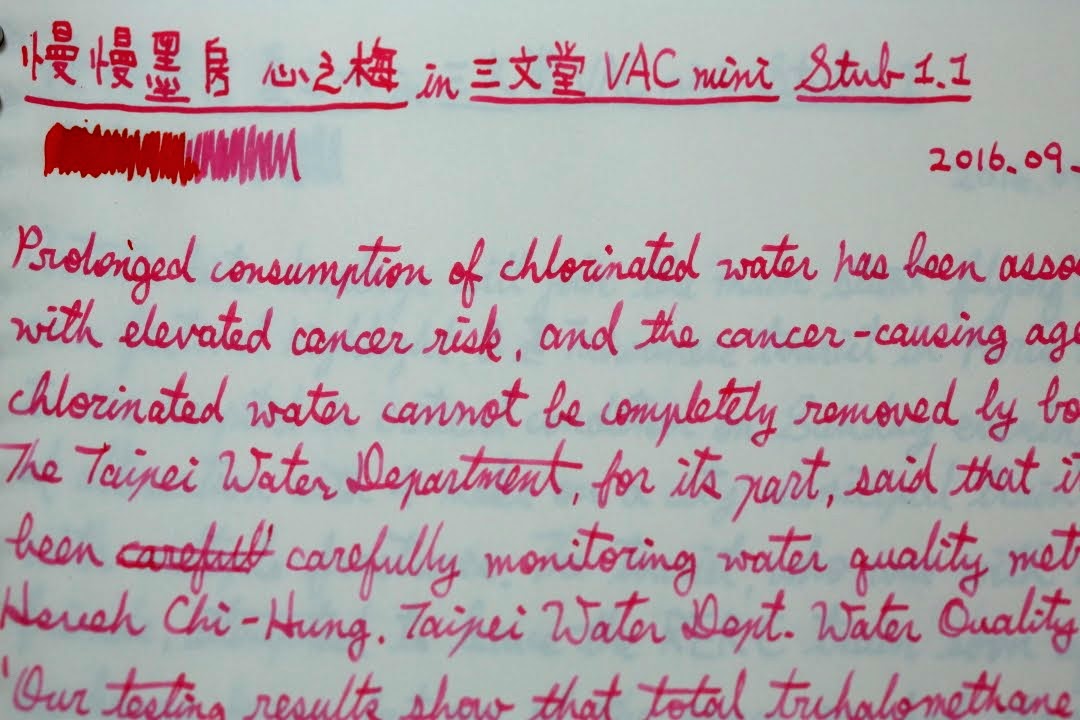 慢慢墨房 心之梅 in 三文堂 VAC mini Stub 1.1
2016.09.
Prolonged consumption of chlorinated water has been asso
with elevated cancer risk, and the cancer-causing age
chlorinated water cannot be completely removed by bo
The Taipei Water Department, for its part, said that it
been carefull carefully monitoring water quality met
Hsueh Chi-Hung. Taipei Water Dept. Water Quality
'Our testing results show that total trihalomethane